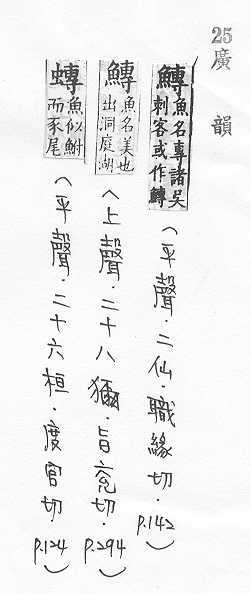 25 廣韻
鱄 魚名專諸吳
刺客或作鱄
（平聲．二仙．職緣切．P.142）
鱄 魚名美也
出洞庭湖
（上聲．二十八獮．旨兗切．P.294）
蟤 魚似鮒
而豕尾
（平聲．二十六桓．度官切．P.124）